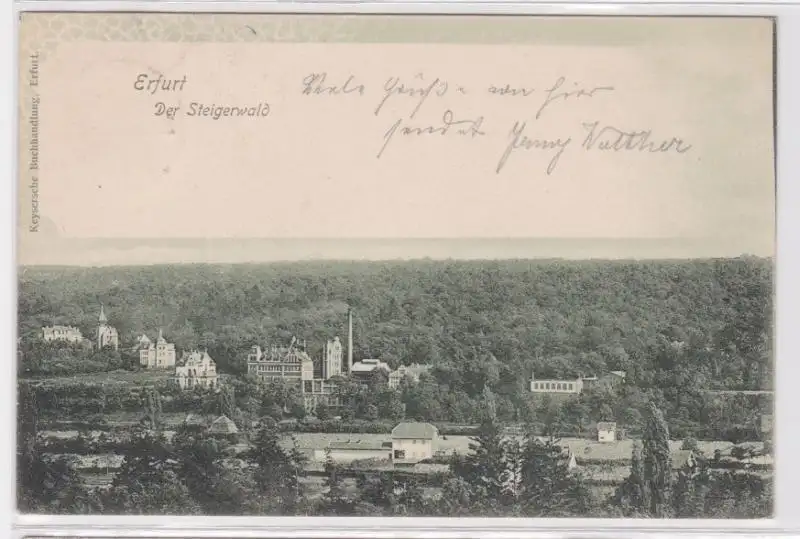 Erfurt
Der Steigerwald
Viele Grüße von hier
sendet Jenny Walther
Keysersche Buchhandlung, Erfurt.